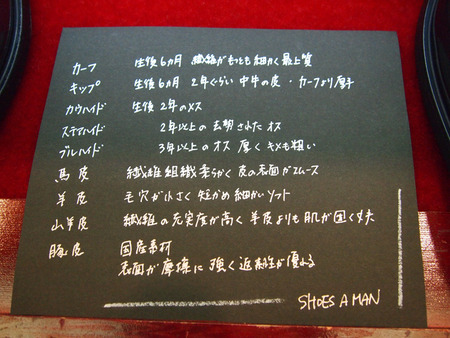 カーフ 生後6カ月 繊維がもっとも細かく最上質
キップ 生後6カ月 2年ぐらい 中牛の皮・カーフより厚手
カウハイド 生後2年のメス
ステアハイド 2年以上の去勢されたオス
ブルハイド 3年以上のオス 厚くキメも粗い
馬皮 繊維組織柔らかく 皮の表面がスムース
羊皮 毛穴が小さく 短かめ 細かいソフト
山羊皮 繊維の充実度が高く 羊皮よりも肌が固く丈夫
豚皮 国産素材
表面が摩擦に強く 通気性が優れる
SHOES A MAN